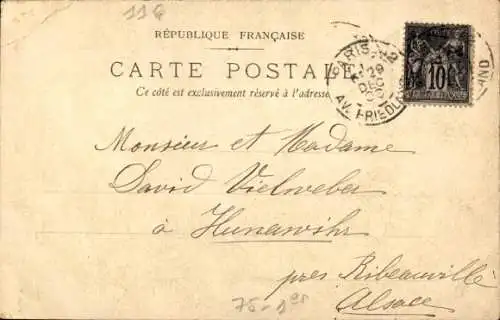 116
RÉPUBLIQUE FRANÇAISE
CARTE POSTALE
Ce côté est exclusivement réservé à l'adresse
PARIS
29
DEC
AV. FRIEDLAND
10
Monsieur et Madame
David Vielweber
à Hunawihr
près Ribeauvillé
Alsace
75-1er